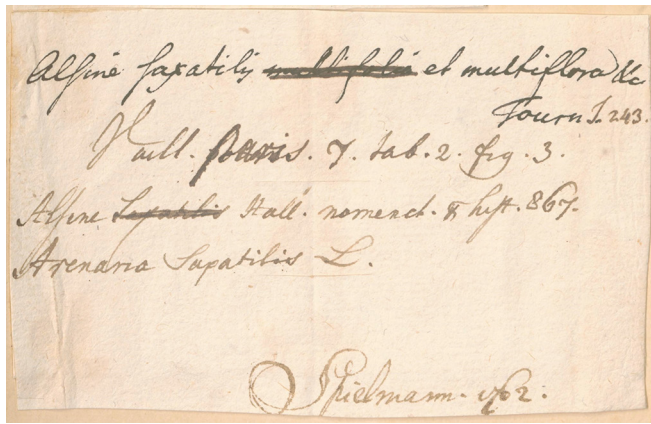 Alsine saxatilis multifolia et multiflora &c
Tourn I. 243.
Vaill. paris. 7. tab. 2. fig. 3.
Alsine Saxatilis Hall. nomencl. & hist. 867.
Arenaria Saxatilis L.
Spielmann.